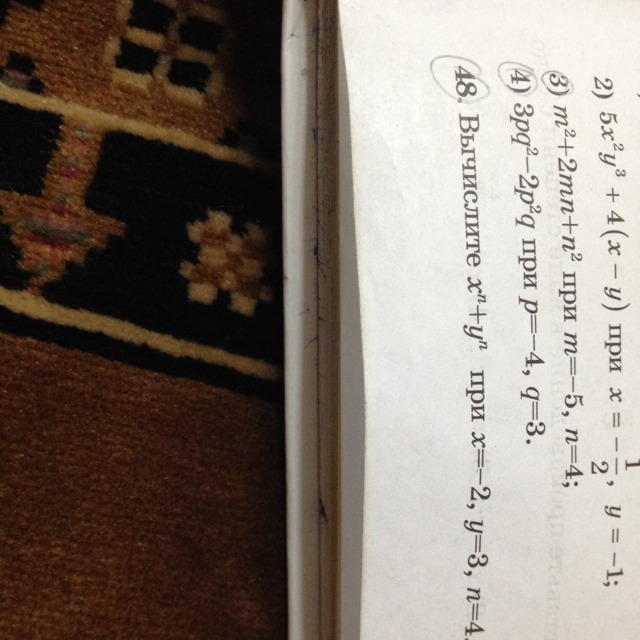 2) 5x²y³ + 4(x − y) при x = −1/2, y = −1;
3) m²+2mn+n² при m=−5, n=4;
4) 3pq²−2p²q при p=−4, q=3.
48. Вычислите xⁿ+yⁿ при x=−2, y=3, n=4.